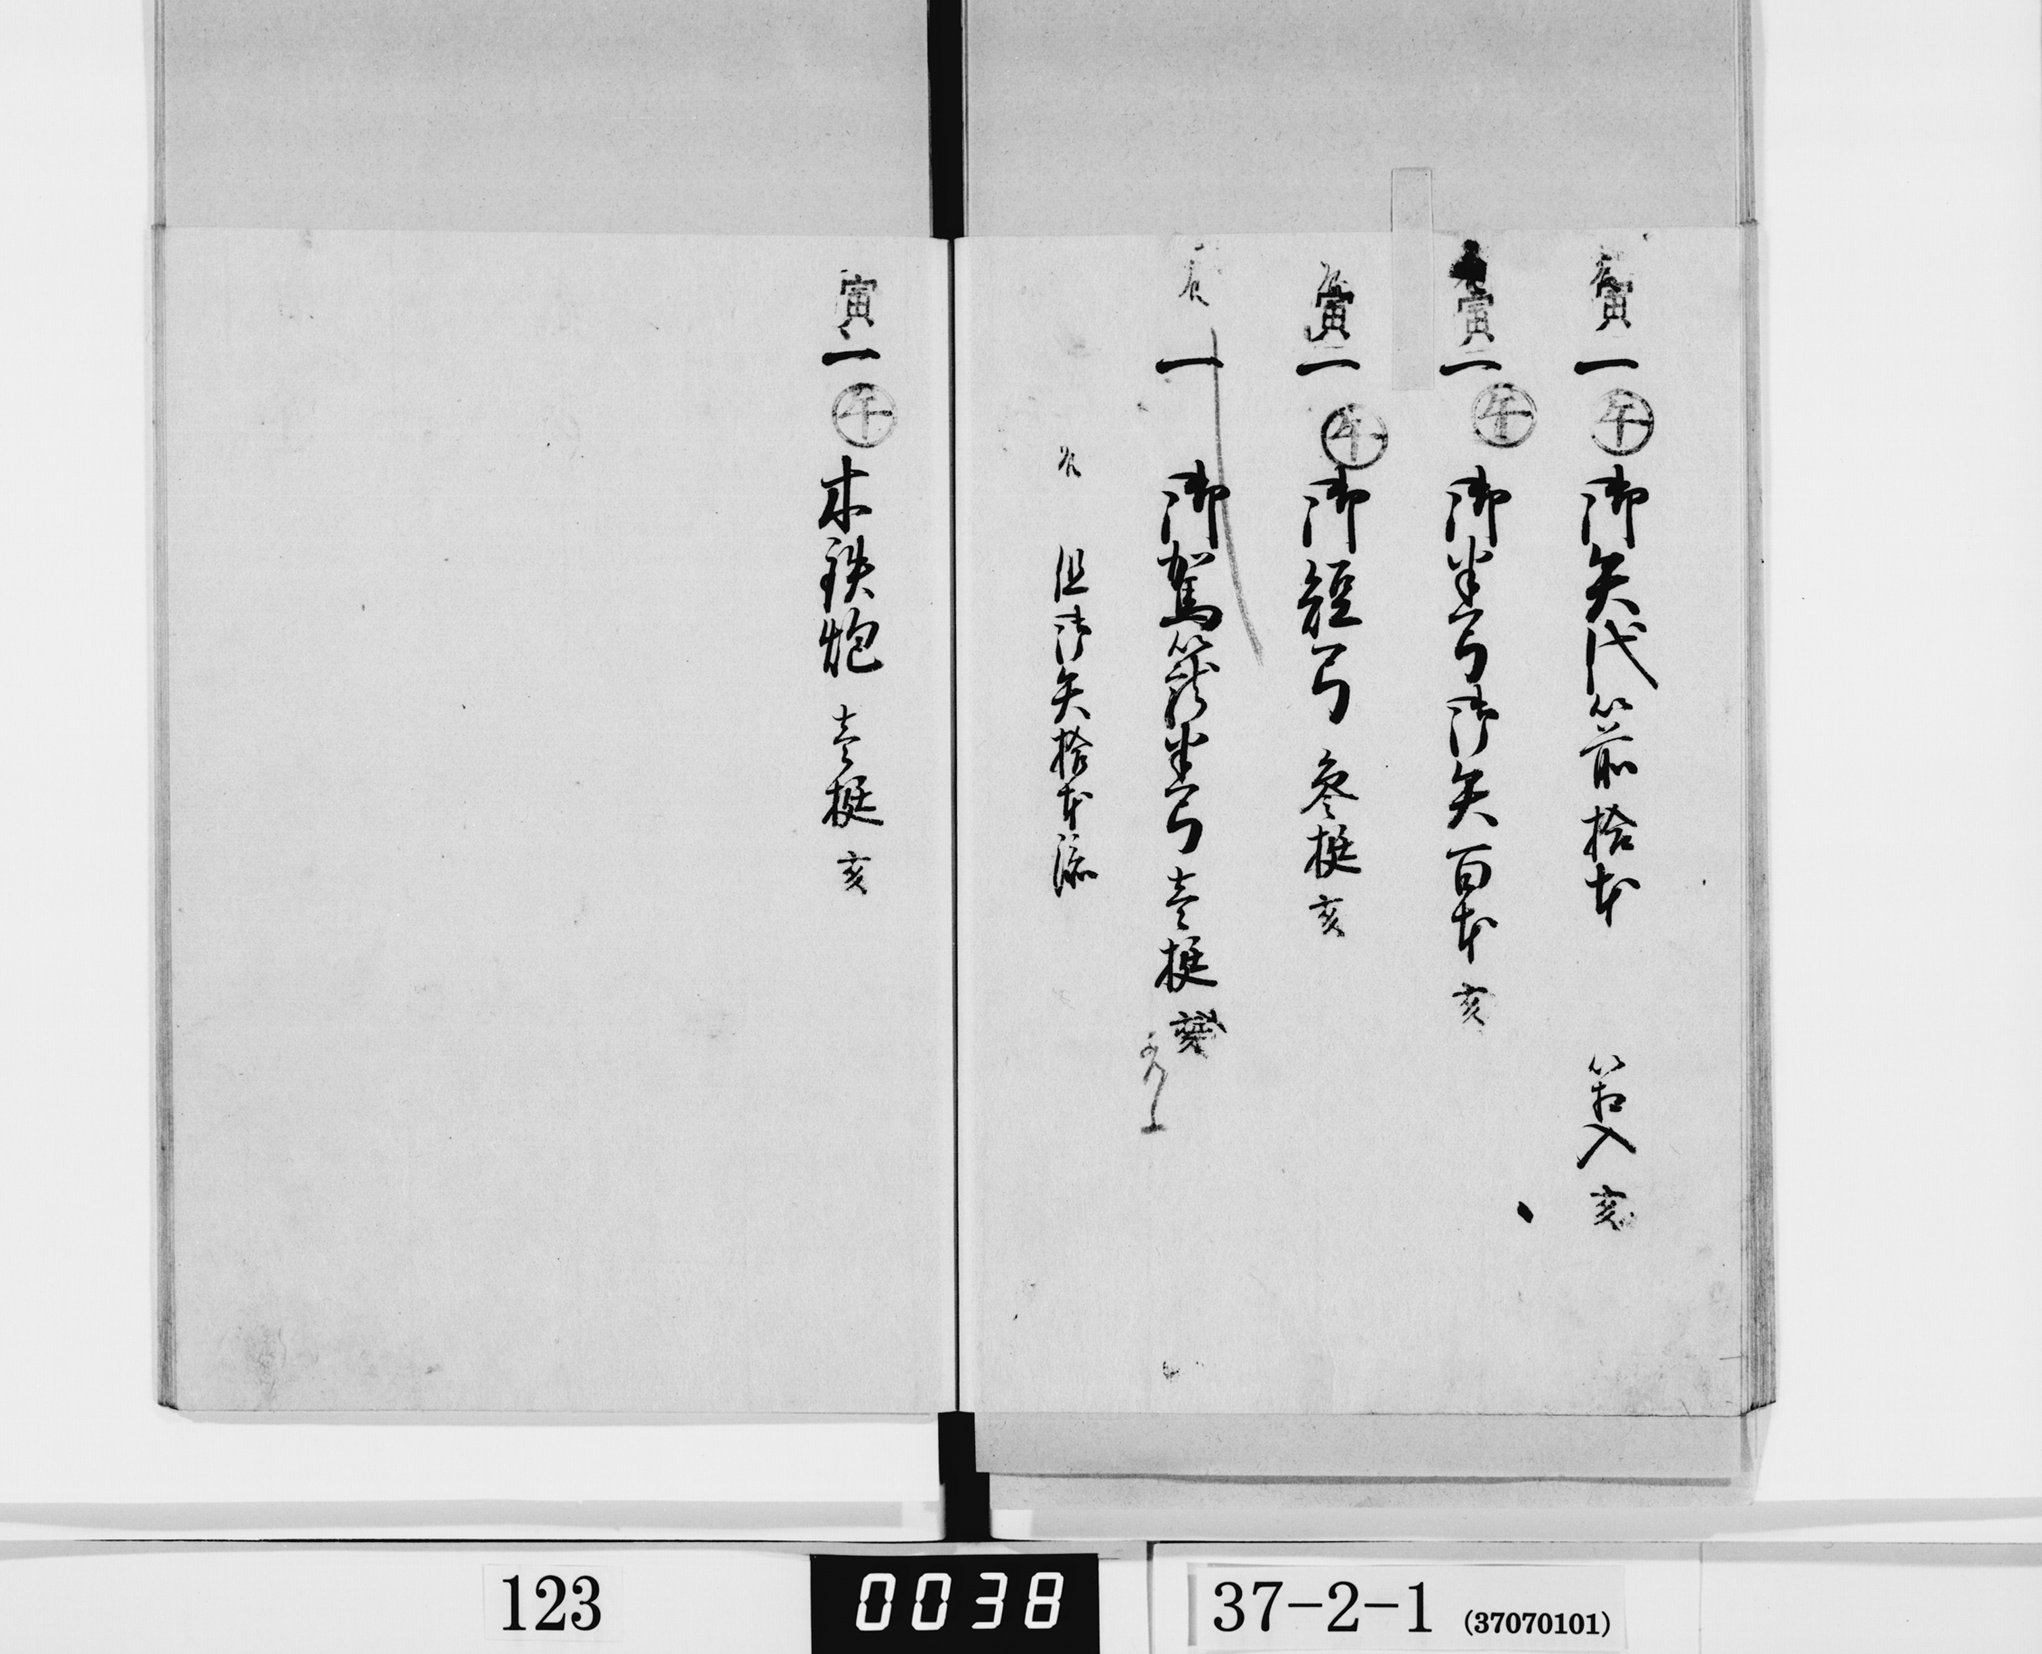 寅一 午 御矢代箭拾本 箱入 亥
寅一 午 御半弓御矢百本 亥
寅一 午 御短弓 参挺 亥
一 御駕籠半弓 壱挺
但御矢拾本添
寅一 午 木鉄炮 壱挺 亥
123
0038
37-2-1 (37070101)